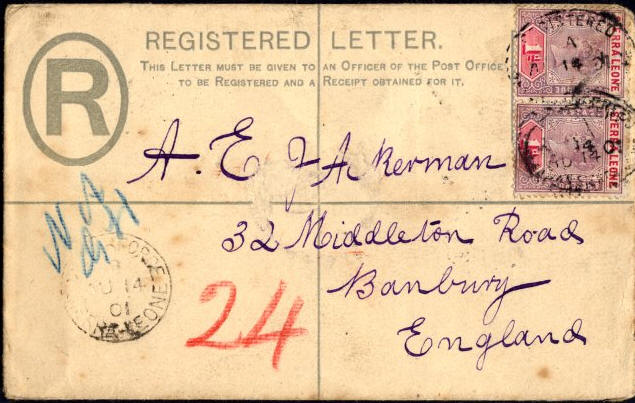 R
REGISTERED LETTER.
THIS LETTER MUST BE GIVEN TO AN OFFICER OF THE POST OFFICE
TO BE REGISTERED AND A RECEIPT OBTAINED FOR IT.
SIERRA LEONE
SIERRA LEONE
A. E. J Ackerman
32 Middleton Road
Banbury
England
AU 14
01
SIERRA-LEONE
24